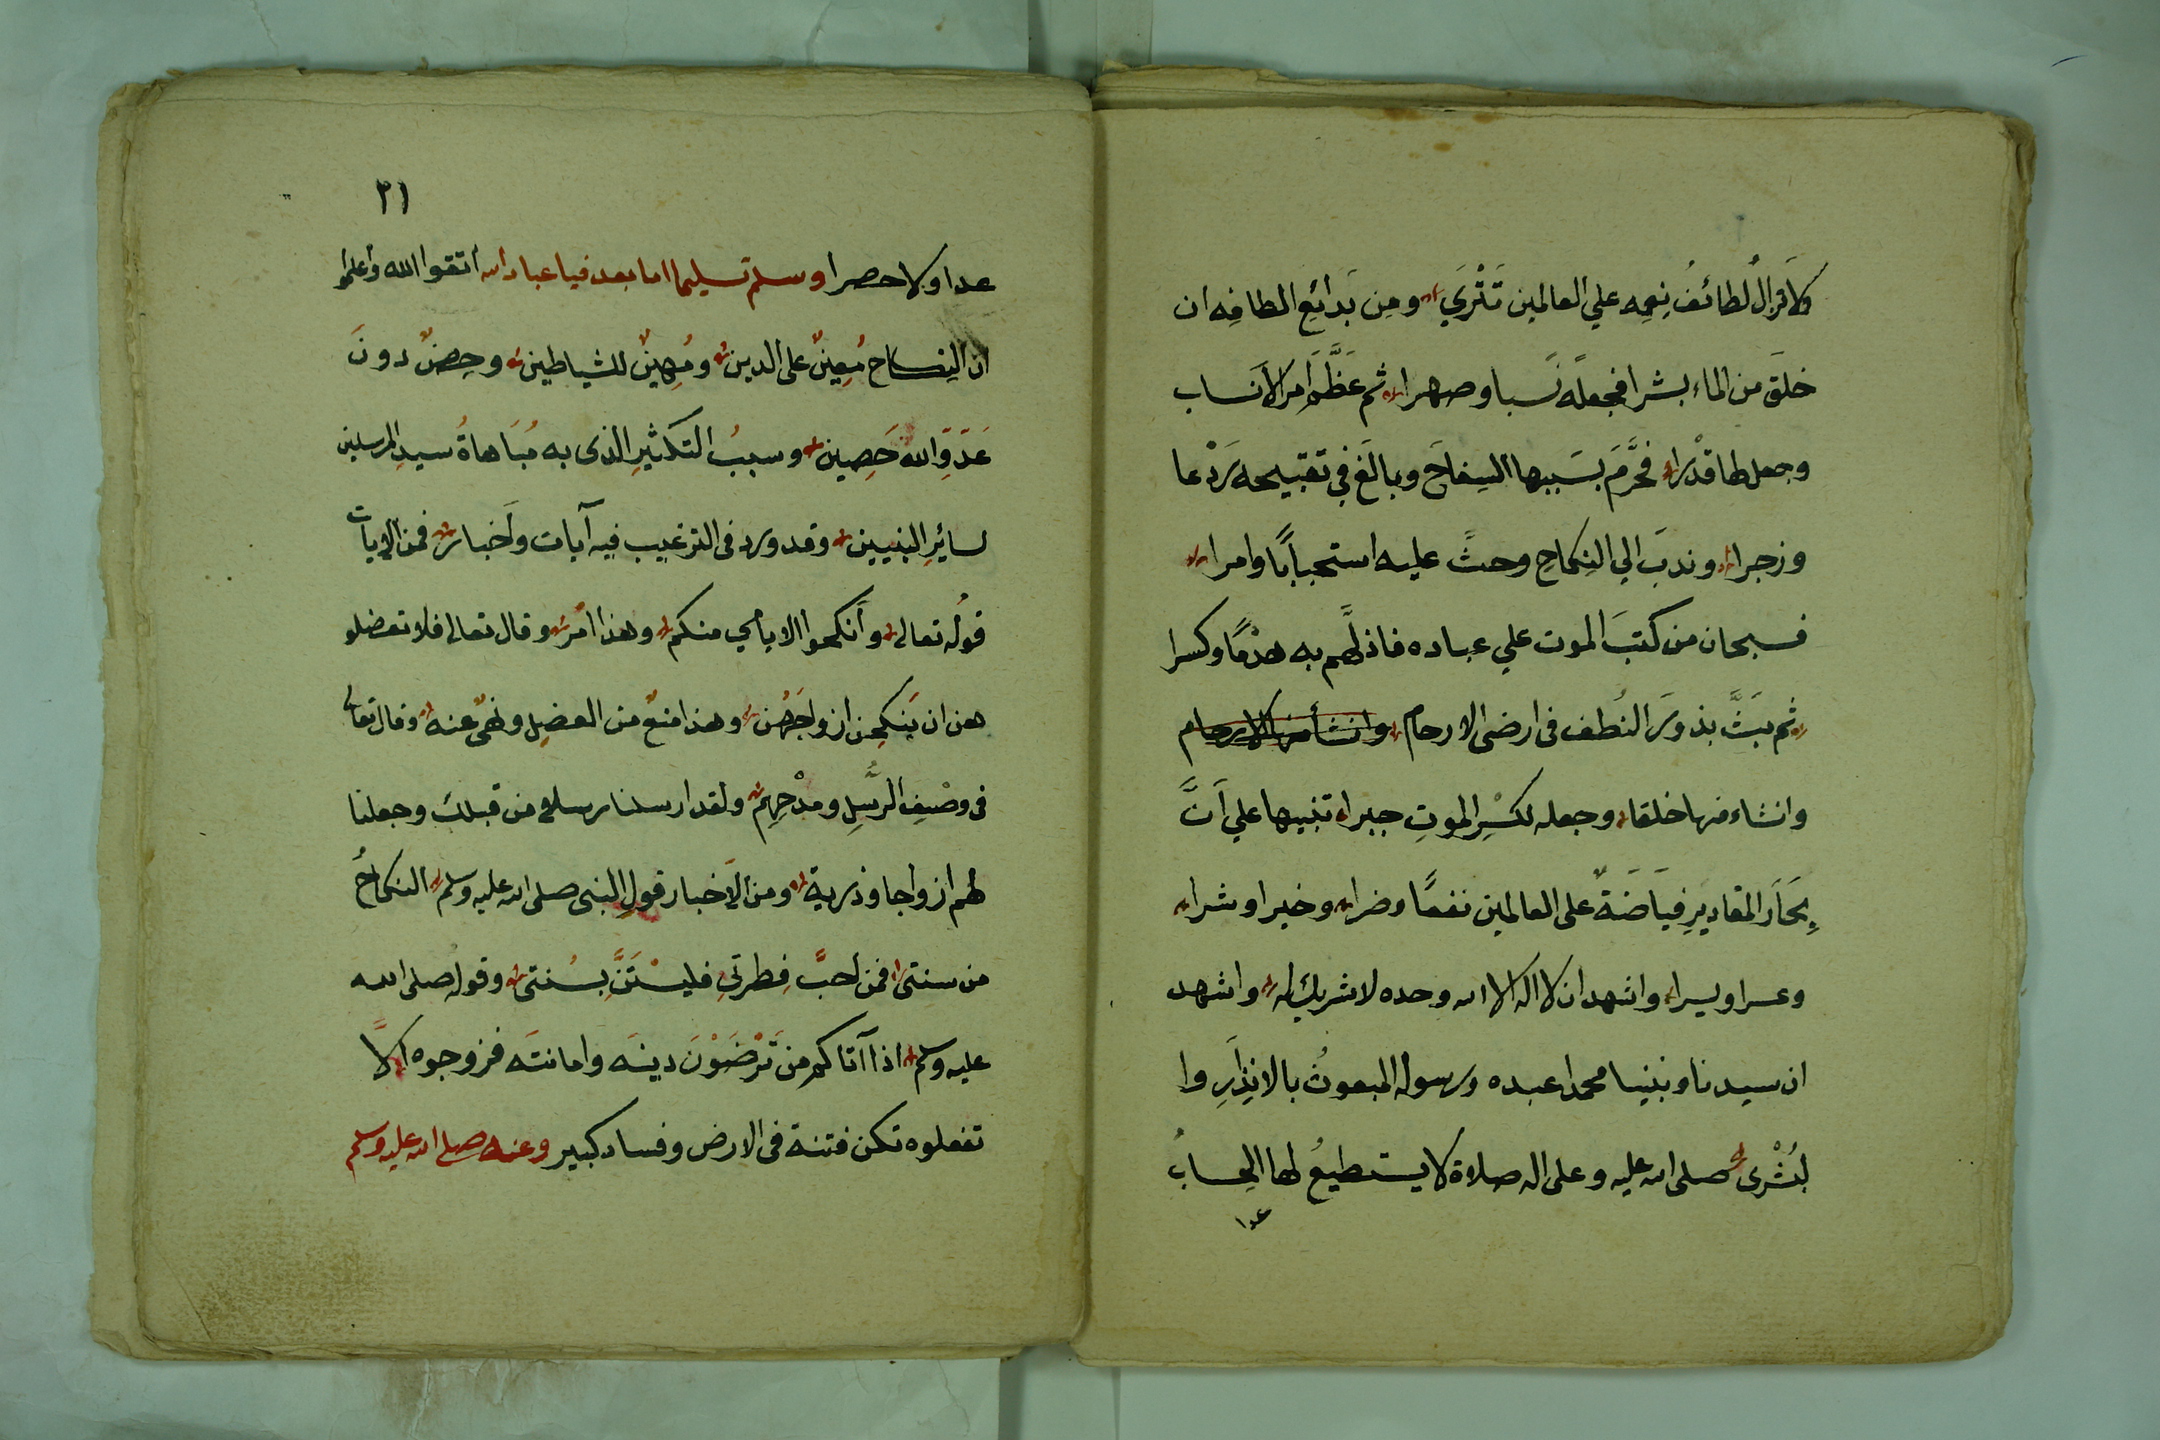 ولاتزالُ لطائفُ نِعمِه علي العالمين تَتْرَي ومِن بَدائعِ الطافِه ان
خلقَ من الماء بشرا فجعلَه نَسبا وصهرا ثم عَظَّمَ اَمرَ الاَنساب
وجعل لها قدْرا فحَّرَمَ بسَببها السِفاحَ وبالَغَ في تقبيحه رَدْعا
وزجرا وندبَ الي النِكاحِ وحثَّ عليه استحباباً وامرا
فسبحان من كتبَ الموت علي عباده فاذلَّهم به هدْمًا وكسرا
ثم بَثَّ بذورَ النُطف في ارضي الارحام وانشأ منها الارحام
وانشاء منها خلقا وجعله لكسْرِ الموتِ جبرا تنبيها علي اَنَّ
بِحَارَ المقاديرِ فيَاضَةٌ على العالمين نفعًا وضرا وخيرا وشرا
وعسرا ويسرا واشهد ان لا اله الا الله وحده لا شريك له واشهد
ان سيدنا ونبينا محمدا عبده ورسوله المبعوثُ بالانِذَارِ وا
لبُشْرى صلى الله عليه وعلى اله صلاة لا يستطيعُ لها الحِسابُ
عدا
٢١
عدا ولا حصرا وسلم تسليما اما بعد فيا عباد الله اتقوا الله واعلموا
ان النِكاح مُعِينٌ على الدين ومُهِينٌ للشياطين وحِصنٌ دونَ
عَدَوِّ اللهِ حَصِين وسببُ التكثيرِ الذى به مُبَاهاةُ سيدِ المرسلين
لسائرِ النبيين وقد ورد فى الترغيب فيه آيات واَخبار فمن الايات
قولُه تعالى وأنكحوا الايامي منكم وهذا اَمر وقال تعالى فلا تعضلو
هن ان يَنكِحن ازواجَهُن وهذا منعٌ من العضِلِ ونهىٌ عنه وقال تعالى
فى وصْفِ الرُّسِلِ ومدْحِهِم ولقد ارسلنا رسلا من قبلك وجعلنا
لهم ازواجا وذرية ومن الاَخبار قولِ النبى صلى الله عليه وسلم النكاحُ
من سنتى فمن اَحبَّ فِطرتي فليسْتَنَّ بسُنتى وقوله صلى الله
عليه وسلم اذا آتاكم من تَرْضَوْنَ دينَه وامانتَه فزوجوه اِلاَّ
تفعلوه تكن فتنة فى الارض وفساد كبير وعنه صلى الله عليه وسلم